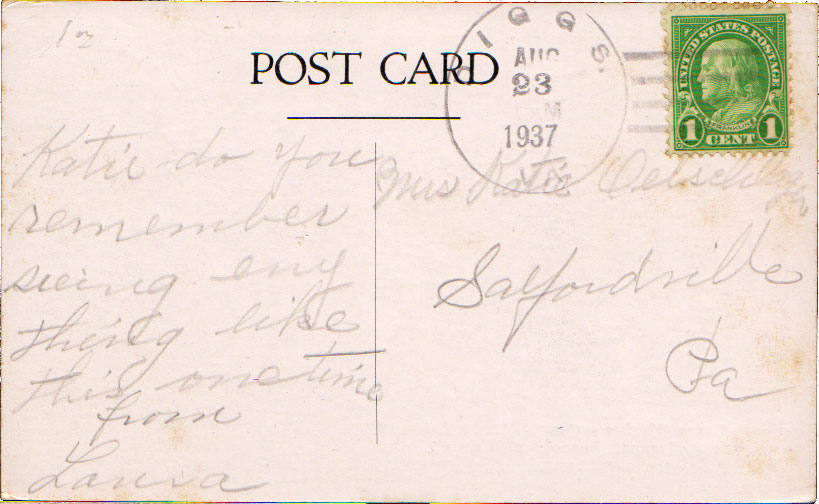 12
POST CARD
RIGGS.
AUG
23
M
1937
UNITED STATES POSTAGE
FRANKLIN
1 CENT 1
Katie do you
remember
seeing eny
thing like
this onetime
from
Laura
Mrs Katie
Salfordville
Pa